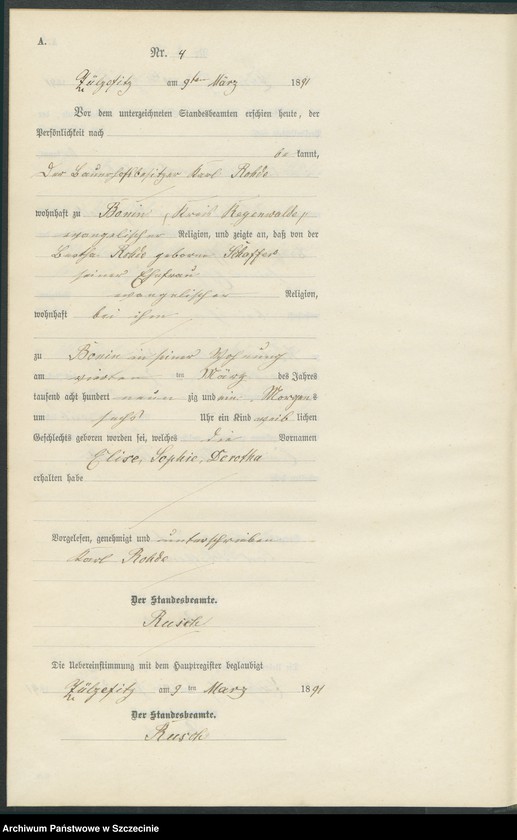 A.
Nr. 4
Zülzefitz am 9ten März 1891
Vor dem unterzeichneten Standesbeamten erschien heute, der
Persönlichkeit nach
be kannt,
der Bauerhofsbesitzer Karl Rohde
wohnhaft zu Bonin, Kreis Regenwalde,
evangelischer Religion, und zeigte an, daß von der
Rohde geborne Schaffer
seiner Ehefrau
evangelischer Religion,
wohnhaft bei ihm
zu Bonin in seiner Wohnung
am vierten ten März des Jahres
tausend acht hundert neun zig und ein, Morgens
um sechs Uhr ein Kind weib lichen
Geschlechts geboren worden sei, welches die Vornamen
Elise, Sophie, Dorothea
erhalten habe
Vorgelesen, genehmigt und unterschrieben
Karl Rohde
Der Standesbeamte.
Rusch
Die Uebereinstimmung mit dem Hauptregister beglaubigt
Zülzefitz am 9 ten März 1891
Der Standesbeamte.
Rusch
Archiwum Państwowe w Szczecinie